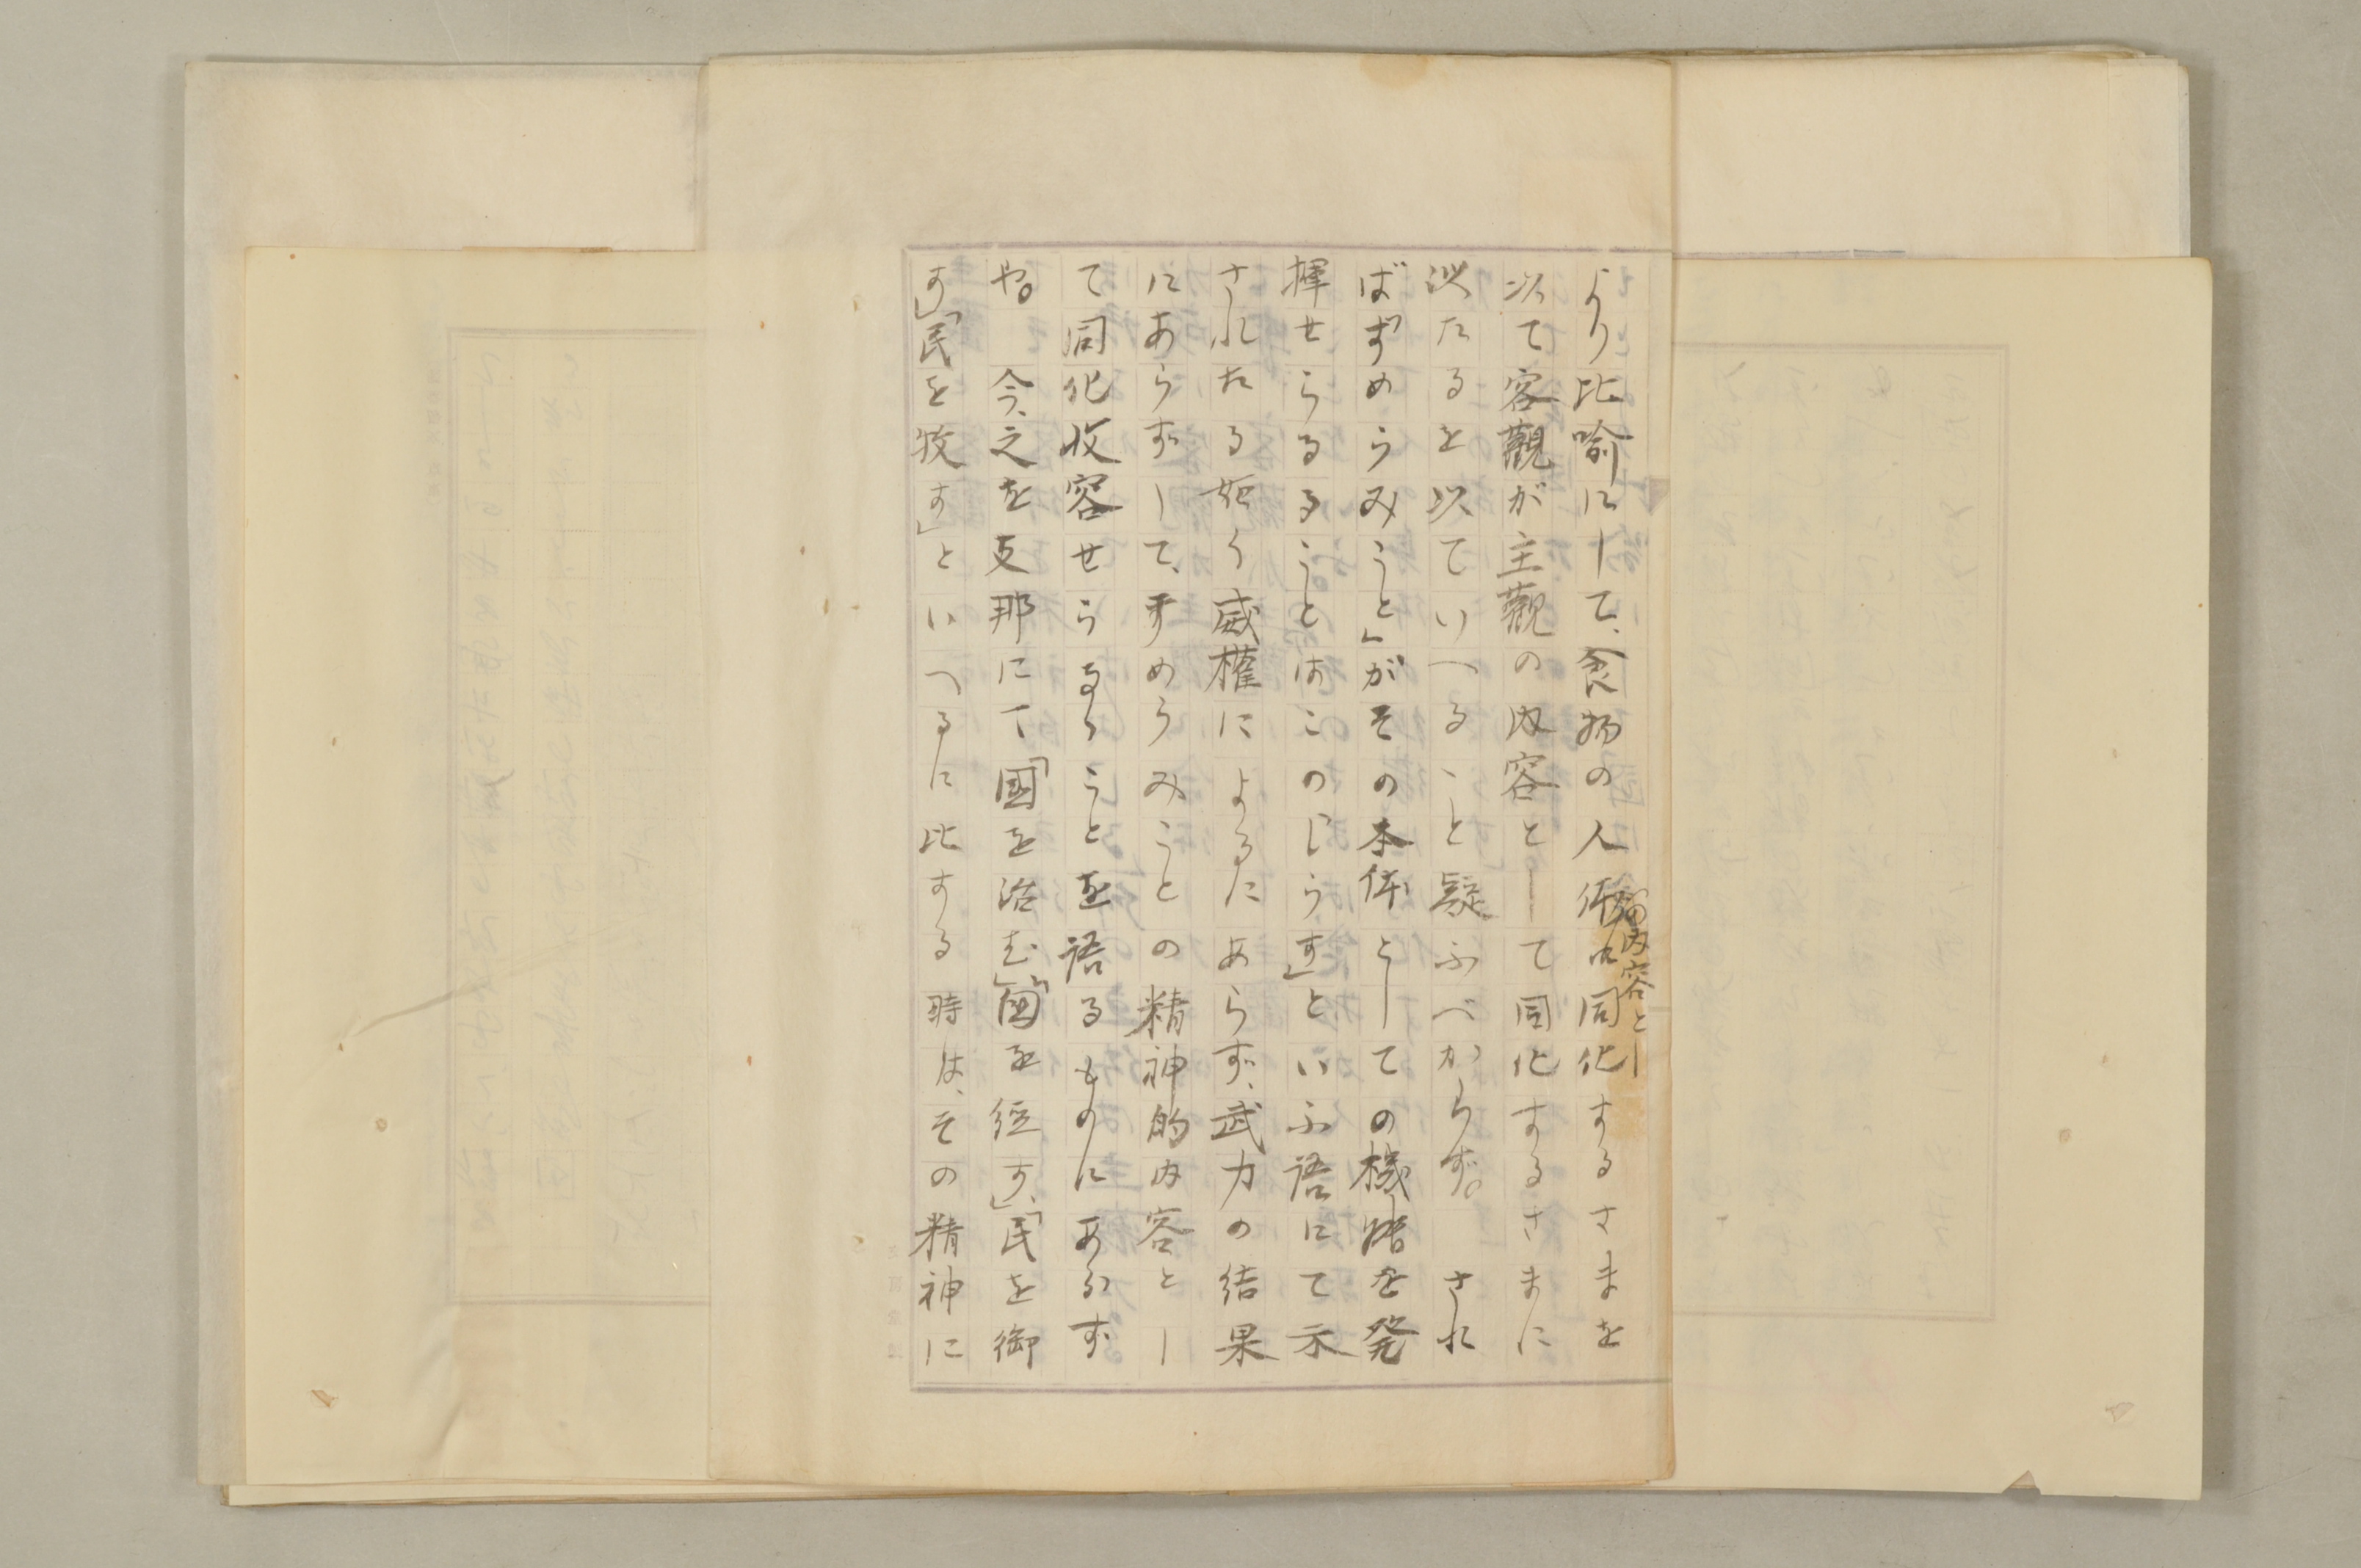 より比喩にして、食物の人体の内容とし同化するさまを
以て客觀が主觀の内容として同化するさまに
淡たるを以ていへること疑ふべからず。 され
ば「すめらみこと」がその本体としての機能を発
揮せらるることはこの「しらす」といふ語にて示
されたる如く威權によるにあらず、武力の結果
にあらずして、すめらみことの精神的内容とし
て同化收容せらるゝことを語るものにあらず
や。 今、之を支那にて「國を治む」「國を経す」、「民を御
す」「民を牧す」といへるに比する時は、その精神に